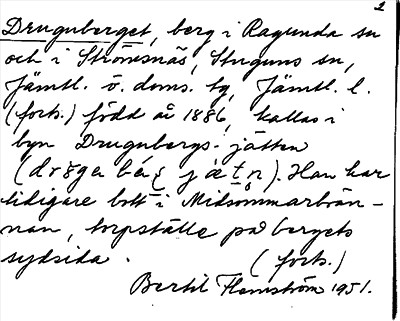 2
Druguberget, berg i Ragunda sn
och i Strömsnäs, Stuguns sn,
Jämtl. ö. doms. tg, Jämtl. l.
(forts.) född år 1886, kallas i
byn Drugubergs-jätten
Han har
tidigare bott i Midsommarbrän-
nan, torpställe på bergets
sydsida. (forts.)
Bertil Flemström 1951.